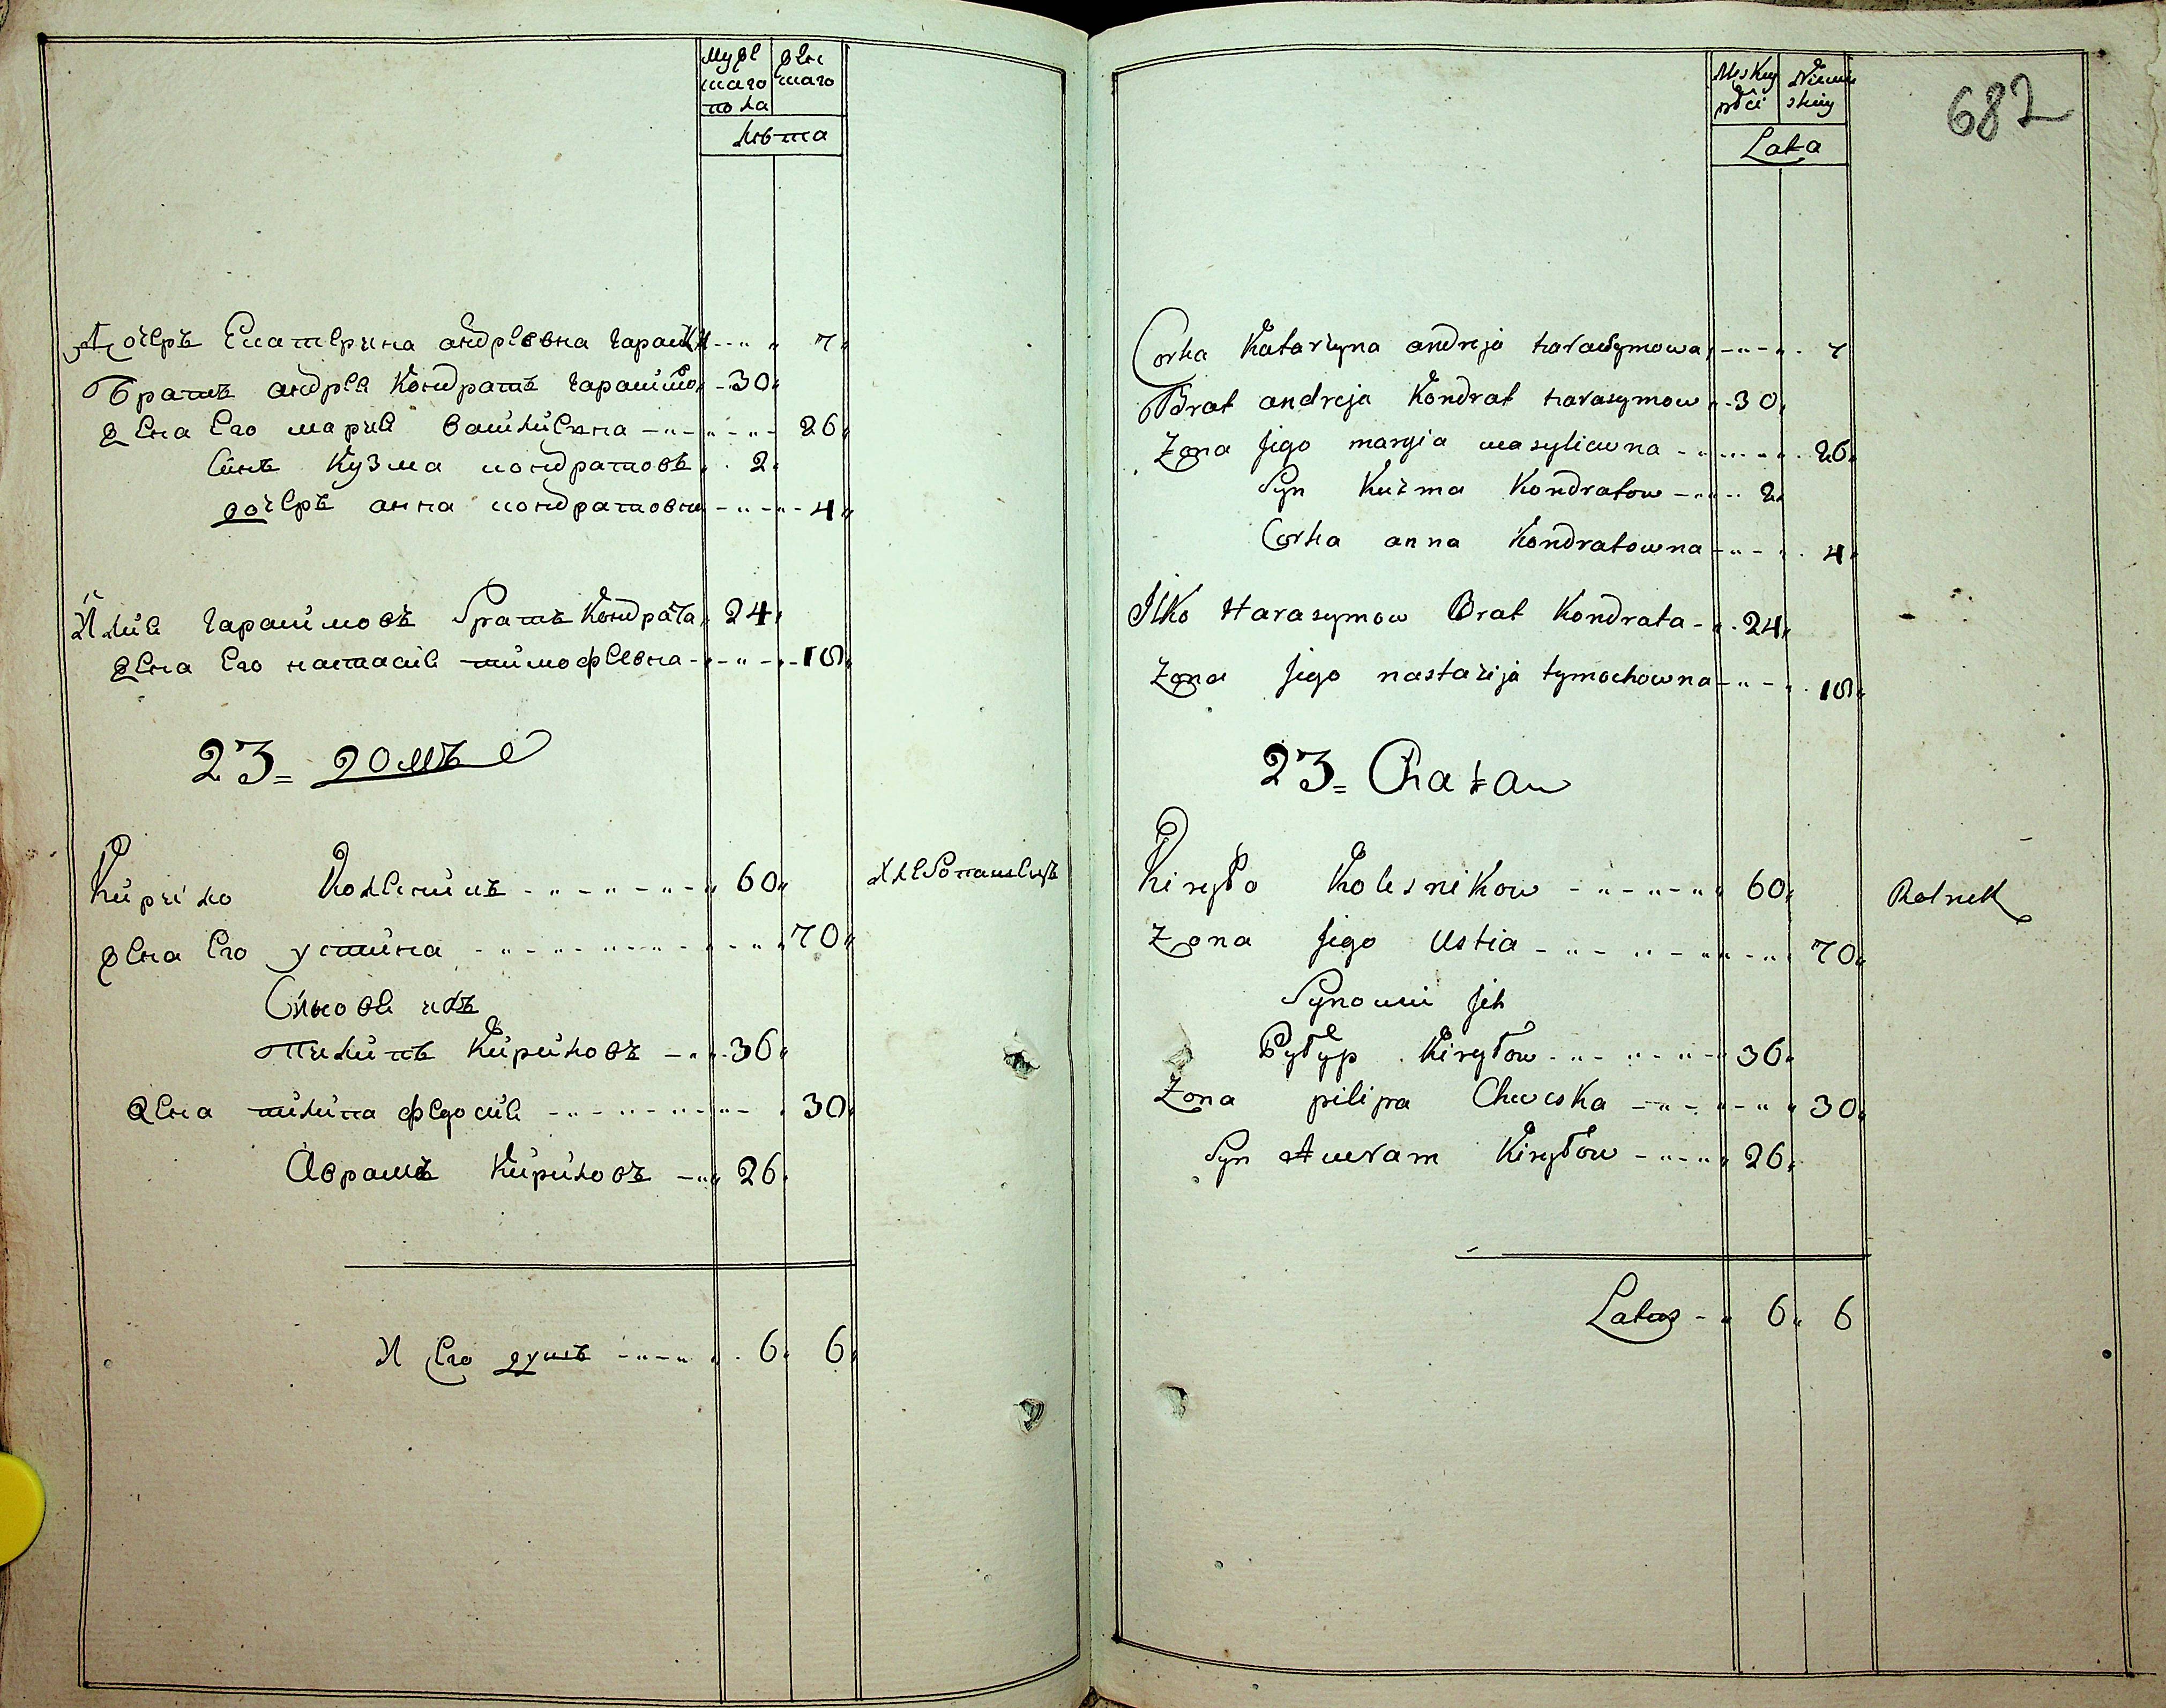 Мужескаго пола
женскаго
Лѣта
Дочеръ Екатерина андреевна гарасим
Братъ андрея Кондратъ гарасимов 30
жена Его мария василиевна 26
Синъ Кузма кондратовъ 2
дочеръ анна кондратовна 4
Илия гарасимовъ братъ Кондрата 24
жена Его настасия тимофеевна 18
23 = домъ
Кирило Колесникъ 60 хлебопашецъ
жена Его устина 70
Синове ихъ
пилипъ Кириловъ 36
жена пилипа федосия 30
Аврамъ Кириловъ 26
И Его душъ 6 6
682
Lata
Corka Katarzyna andreja harasymowa 7
Brat andreja Kondrat harasymow 30
Zona Jego maryia wasyliewna 26
Syn Kuzma Kondratow 2
Corka anna Kondratowna 4
Ilko Harasymow Brat Kondrata 24
Zona Jego nastazija tymochowna 18
23 = Chata
Kiryło Kolesnikow 60 Rolnik
Zona Jego Ustia 70
Synowi Jch
Pyłyp Kiryłow 36
Zona pilipa Chweska 30
Syn Awram Kiryłow 26
Latus 6 6